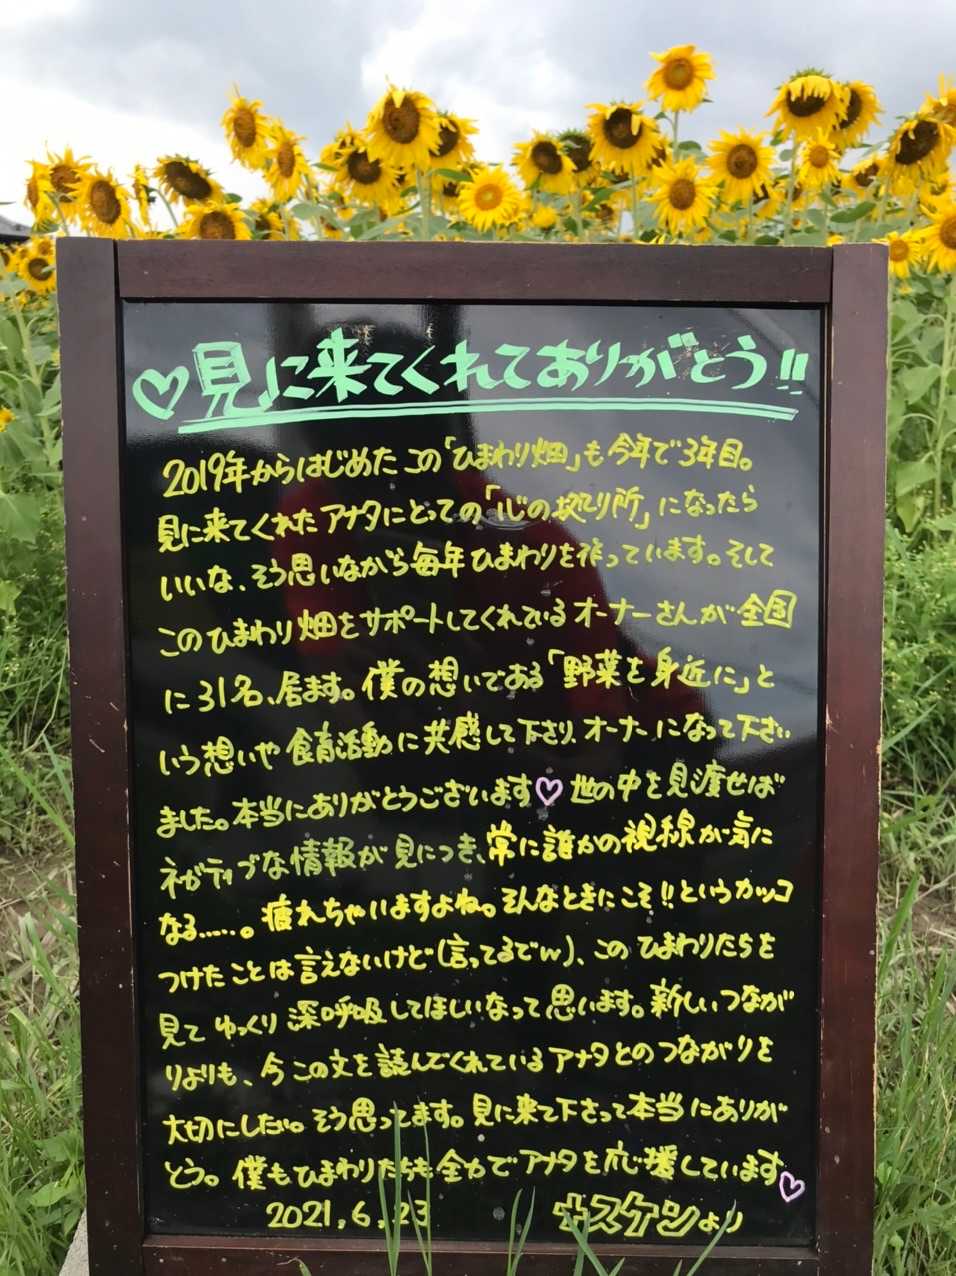 ♡見に来てくれてありがとう!!
2019年からはじめたこの「ひまわり畑」も今年で3年目。
見に来てくれたアナタにとっての「心の拠り所」になったら
いいな、そう思いながら毎年ひまわりを作っています。そして
このひまわり畑をサポートしてくれているオーナーさんが全国
に31名、居ます。僕の想いである「野菜を身近に」と
いう想いや食育活動に共感して下さり、オーナーになって下さい
ました。本当にありがとうございます♡世の中を見渡せば
ネガティブな情報が見につき、常に誰かの視線が気に
なる……。疲れちゃいますよね。そんなときにこそ!!というカッコ
つけたことは言えないけど(言ってるでw)、このひまわりたちを
見てゆっくり深呼吸してほしいなって思います。新しいつなが
りよりも、今この文を読んでくれているアナタとのつながりを
大切にしたい。そう思ってます。見に来て下さって本当にありが
とう。僕もひまわりたちも全力でアナタを応援しています♡
2021,6,23 ウスケンより